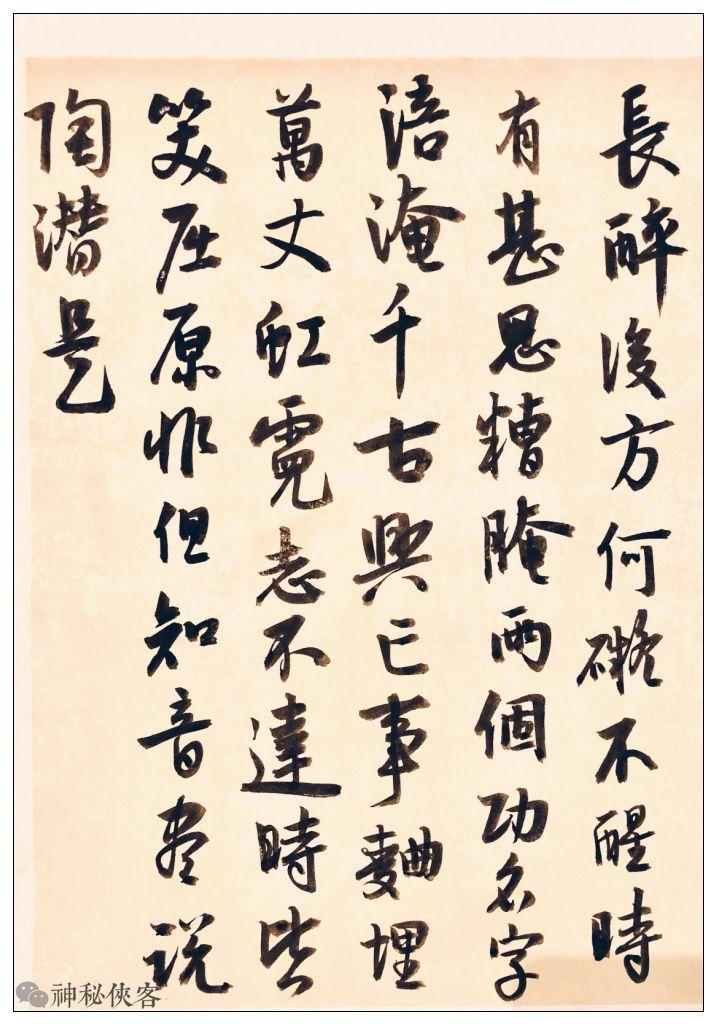 長醉後方何礙不醒時
有甚思糟腌兩個功名字
涪淹千古興亡事麯埋
萬丈虹霓志不達時皆
笑屈原非但知音盡说
陶潜是
神秘俠客